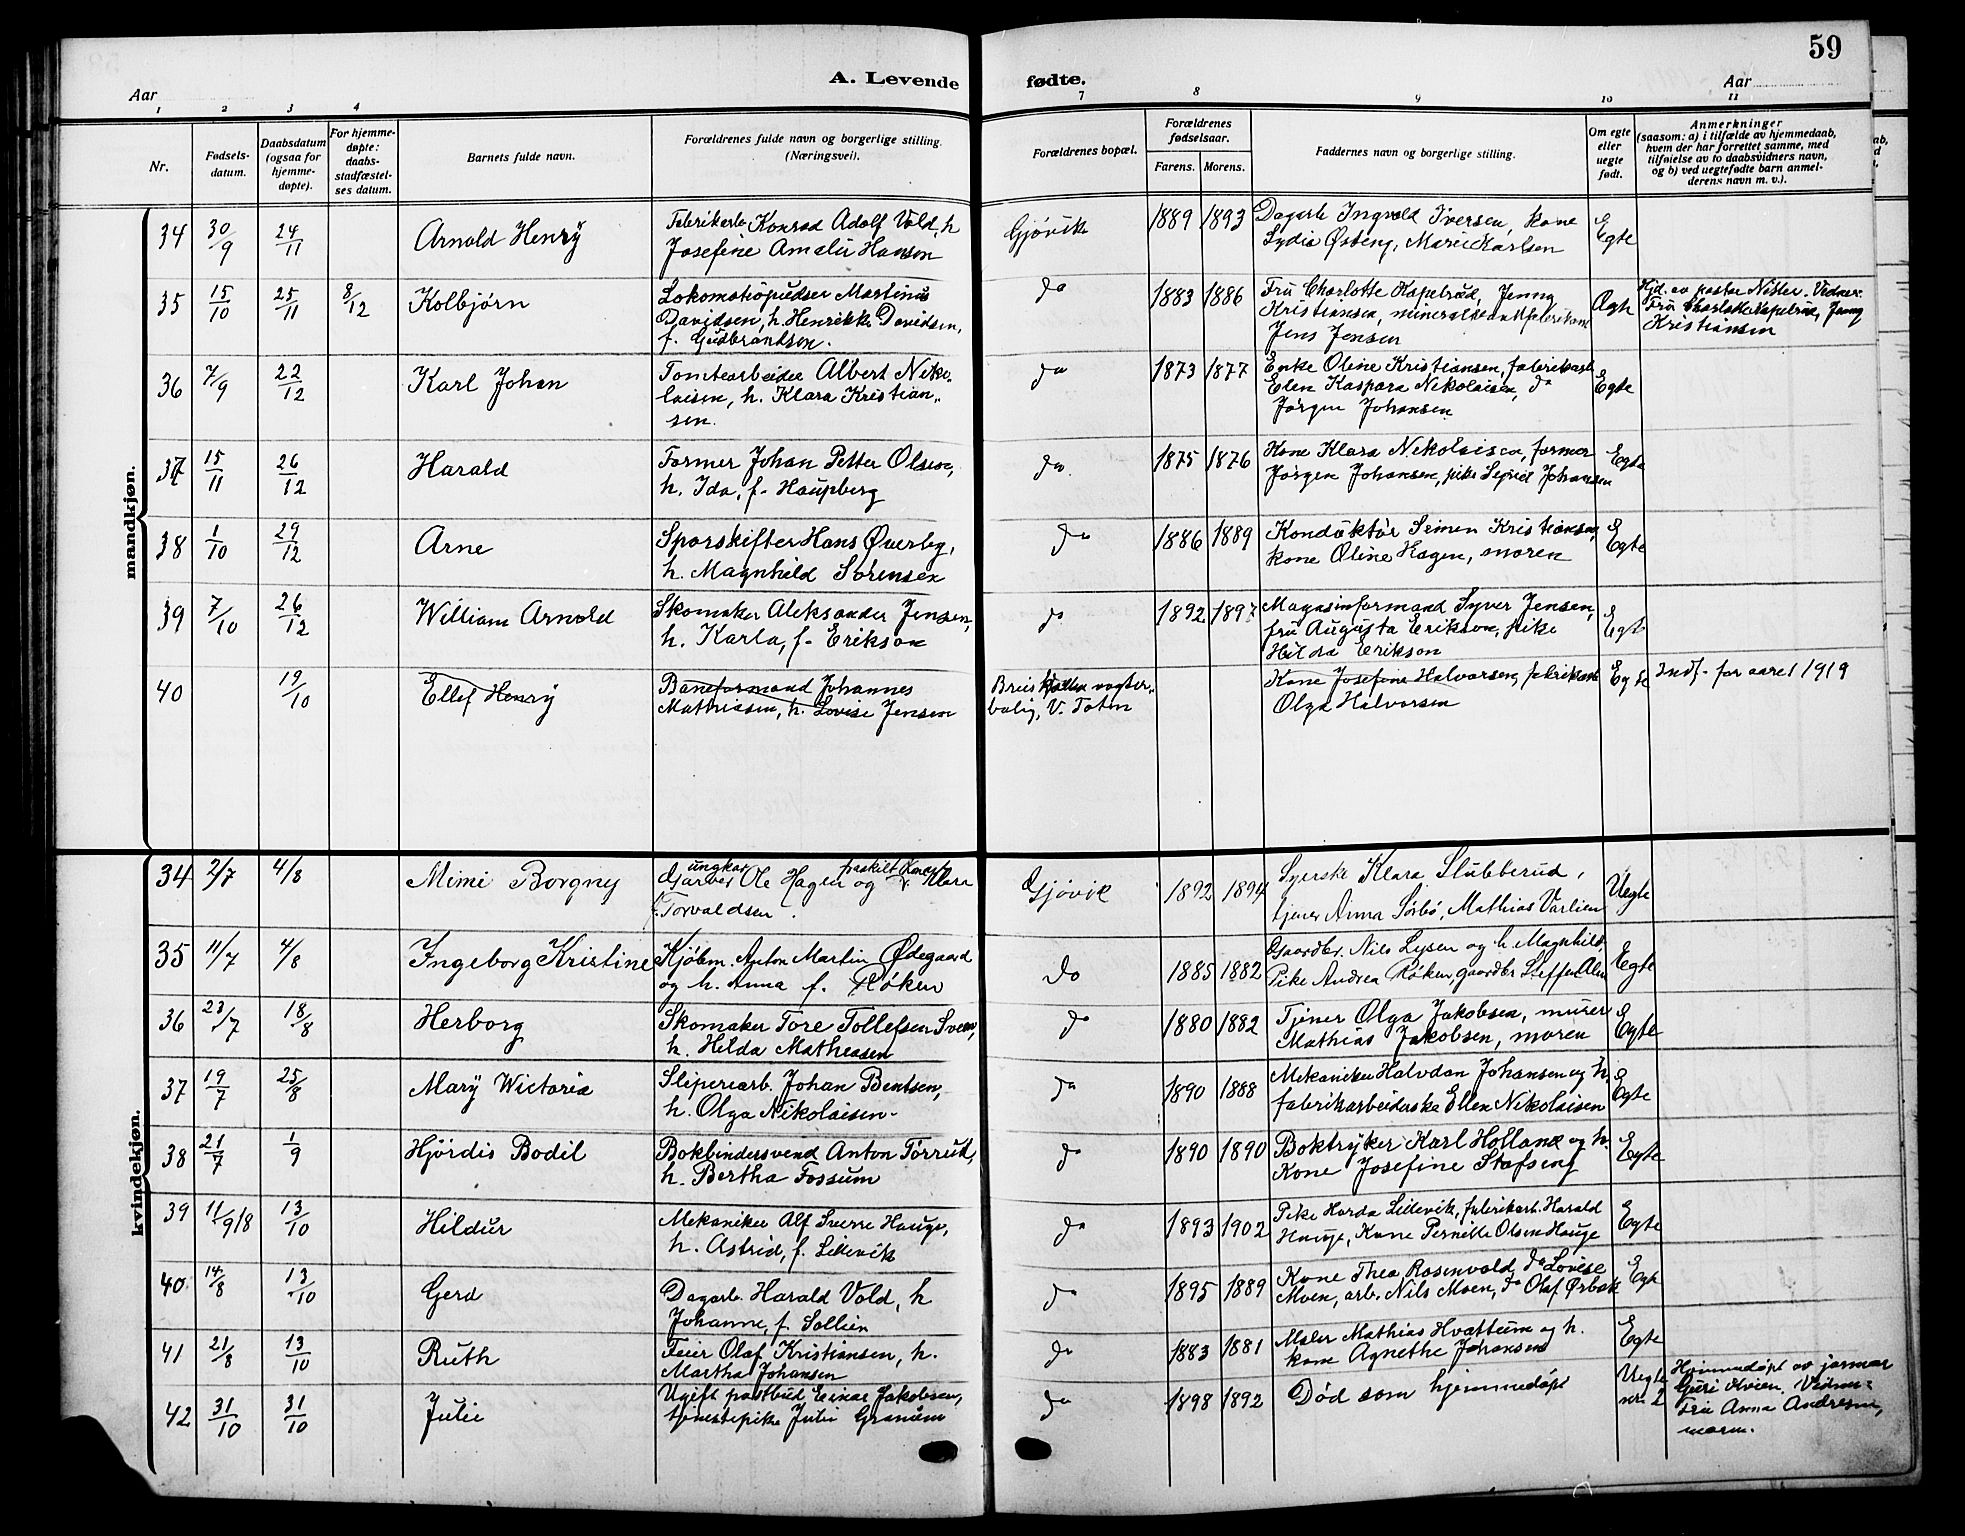 59
A. Levende fødte.
Aar Aar
1 2 3 4 7 8 9 10 11
Nr.
Fødsels-
datum.
Daabsdatum
(ogsaa for
hjemme-
døpte).
For hjemme-
døpte:
daabs-
stadfæstel-
ses datum.
Barnets fulde navn.
Forældrenes fulde navn og borgerlige stilling.
(Næringsvei).
Forældrenes bopæl.
Forældrenes
fødselsaar.
Farens. Morens.
Faddernes navn og borgerlige stilling.
Om egte
eller
uegte
født.
Anmerkninger
(saasom: a) i tilfælde av hjemmedaab,
hvem der har forrettet samme, med
tilføielse av to daabsvidners navn,
og b) ved uegtefødte barn anmel-
derens navn m. v.).
mandkjøn.
34 30/9 24/11 Arnold Henry
Fabrikarb. Konrad Adolf Vold, h
Josefine Amalie Hansen
Gjøvik 1889 1893
Dagarb Ingvald Iversen, kone
Lydia Østeng, Marie Karlsen
Egte
35 15/10 25/11 8/12 Kolbjørn
Lokomotivpudser Martinus
Davidsen, h. Henrikke Davidsen,
f. Gudbrandsen.
do 1883 1886
Fru Charlotte Kapelrud, Jenny
Kristiansen, mineralvandfabrikant
Jens Jensen
Egte
Hjd. av pastor Nitter. Vidner:
Fru Charlotte Kapelrud, Jenny
Kristiansen
36 7/9 22/12 Karl Johan
Tomtearbeider Albert Niko-
laisen, h. Klara Kristian-
sen.
do 1873 1877
Enke Oline Kristiansen, fabrikarb
Elen Kaspara Nikolaisen, do
Jørgen Johansen
Egte
37 15/11 26/12 Harald
Former Johan Petter Olsen,
h. Ida, f. Haupberg
do 1875 1876
Kone Klara Nikolaisen, former
Jørgen Johansen, pike Sigrid Johansen
Egte
38 1/10 29/12 Arne
Sporskifter Hans Øverby,
h. Magnhild Sørensen
do 1886 1889
Konduktør Simen Kristiansen,
kone Oline Hagen, moren
Egte
39 7/10 26/12 William Arnold
Skomaker Aleksander Jensen,
h. Karla, f. Erikson
do 1892 1897
Magasinformand Syver Jensen,
fru Augusta Erikson, pike
Hilda Erikson
Egte
40 19/10 Ellef Henry
Baneformand Johannes
Mathiassen, h. Lovise Jensen
vogter-
bolig, V. Toten
Kone Josefine Halvorsen, fabrikarb
Olga Halvorsen
Egte
Indf. for aaret 1919
kvindekjøn.
34 2/7 4/8 Mimi Borgny
ungkar fraskilt Kone
Garver Ole Hagen og Klara
f. Torvaldsen.
Gjøvik 1892 1894
Syerske Klara Slubberud,
tjener Anna Sørbø, Mathias Varlien
Uegte
35 11/7 4/8 Ingeborg Kristine
Kjøbm. Anton Martin Ødegaard
og h. Anna f. Røken
do 1885 1882
Gaardbr. Nils Lysen og h. Magnhild,
Pike Andrea Røken, gaardbr Steffen Alm
Egte
36 23/7 18/8 Herborg
Skomaker Tore Tollefsen Sveen,
h. Hilda Mathiasen
do 1880 1882
Tjener Olga Jakobsen, murer
Mathias Jakobsen, moren
Egte
37 19/7 25/8 Mary Wictoria
Sliperiarb. Johan Bentsen,
h. Olga Nikolaisen.
do 1890 1888
Mekaniker Halvdan Johansen og h.
fabrikarbeiderske Ellen Nikolaisen
Egte
38 21/7 1/9 Hjørdis Bodil
Bokbindersvend Anton Tørrud,
h. Bertha Fossum
do 1890 1890
Boktryker Karl Holland og h.
Kone Josefine Stafseng
Egte
39 11/9 18 13/10 Hildur
Mekaniker Alf Sverre Hauge,
h. Astrid, f. Lillevik
do 1893 1902
Pike Harda Lillevik, fabrikarb. Harald
Hauge, Kone Pernille Olsen Hauge
Egte
40 14/8 13/10 Gerd
Dagarb. Harald Vold, h
Johanne, f. Sollien
do 1895 1889
Kone Thea Rosenvold, do Lovise
Moen, arb. Nils Moen, do Olaf Ørbæk
Egte
41 21/8 13/10 Ruth
Feier Olaf Kristiansen, h.
Martha Johansen
do 1883 1881
Maler Mathias Hvattum og h.
kone Agnethe Johansen
Egte
42 31/10 31/10 Julie
Ugift postbud Einar Jakobsen,
tjenestepike Julie Granum
do 1898 1892
Død som hjemmedøpt
Uegte
nr. 2
Hjemmedøpt av jormor
Guri Kvien. Vidner:
Fru Anna Andresen,
moren.